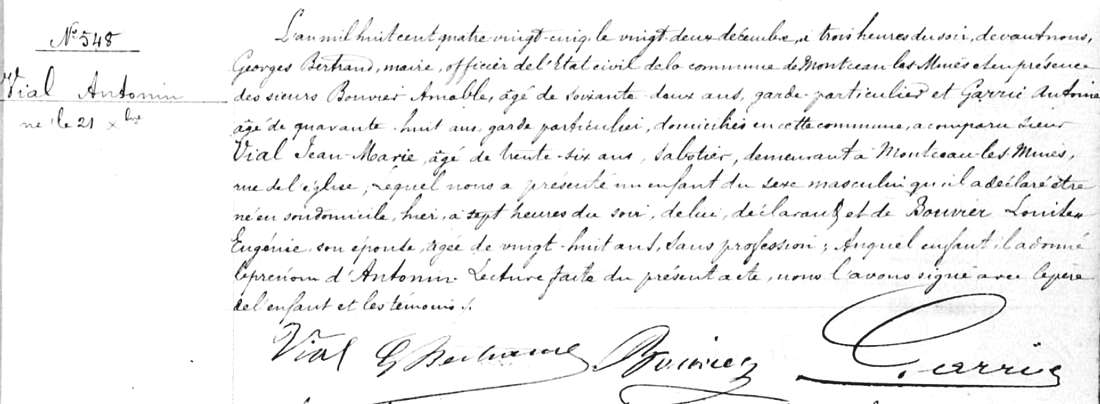 N° 548
Vial Antonin
né le 21 Xbre
L'an mil huit cent quatre vingt-cinq, le vingt-deux décembre, à trois heures du soir, devant nous,
Georges Bertrand, maire, officier de l'Etat civil de la commune de Montceau-les-Mines et en présence
des sieurs Bouvier Amable, âgé de soixante-deux ans, garde-particulier et Garric Antoine
âgé de quarante-huit ans, garde particulier, domiciliés en cette commune, a comparu sieur
Vial Jean-Marie, âgé de trente-six ans, sabotier, demeurant à Montceau-les-Mines,
rue de l'église, lequel nous a présenté un enfant du sexe masculin qu'il a déclaré être
né en son domicile, hier, à sept heures du soir, de lui, déclarant et de Bouvier Louise
Eugénie son épouse, âgée de vingt-huit ans, sans profession; Auquel enfant il a donné
le prénom d'Antonin. Lecture faite du présent acte, nous l'avons signé avec le père
de l'enfant et les témoins.
Vial G Bertrand Bouvier Garric